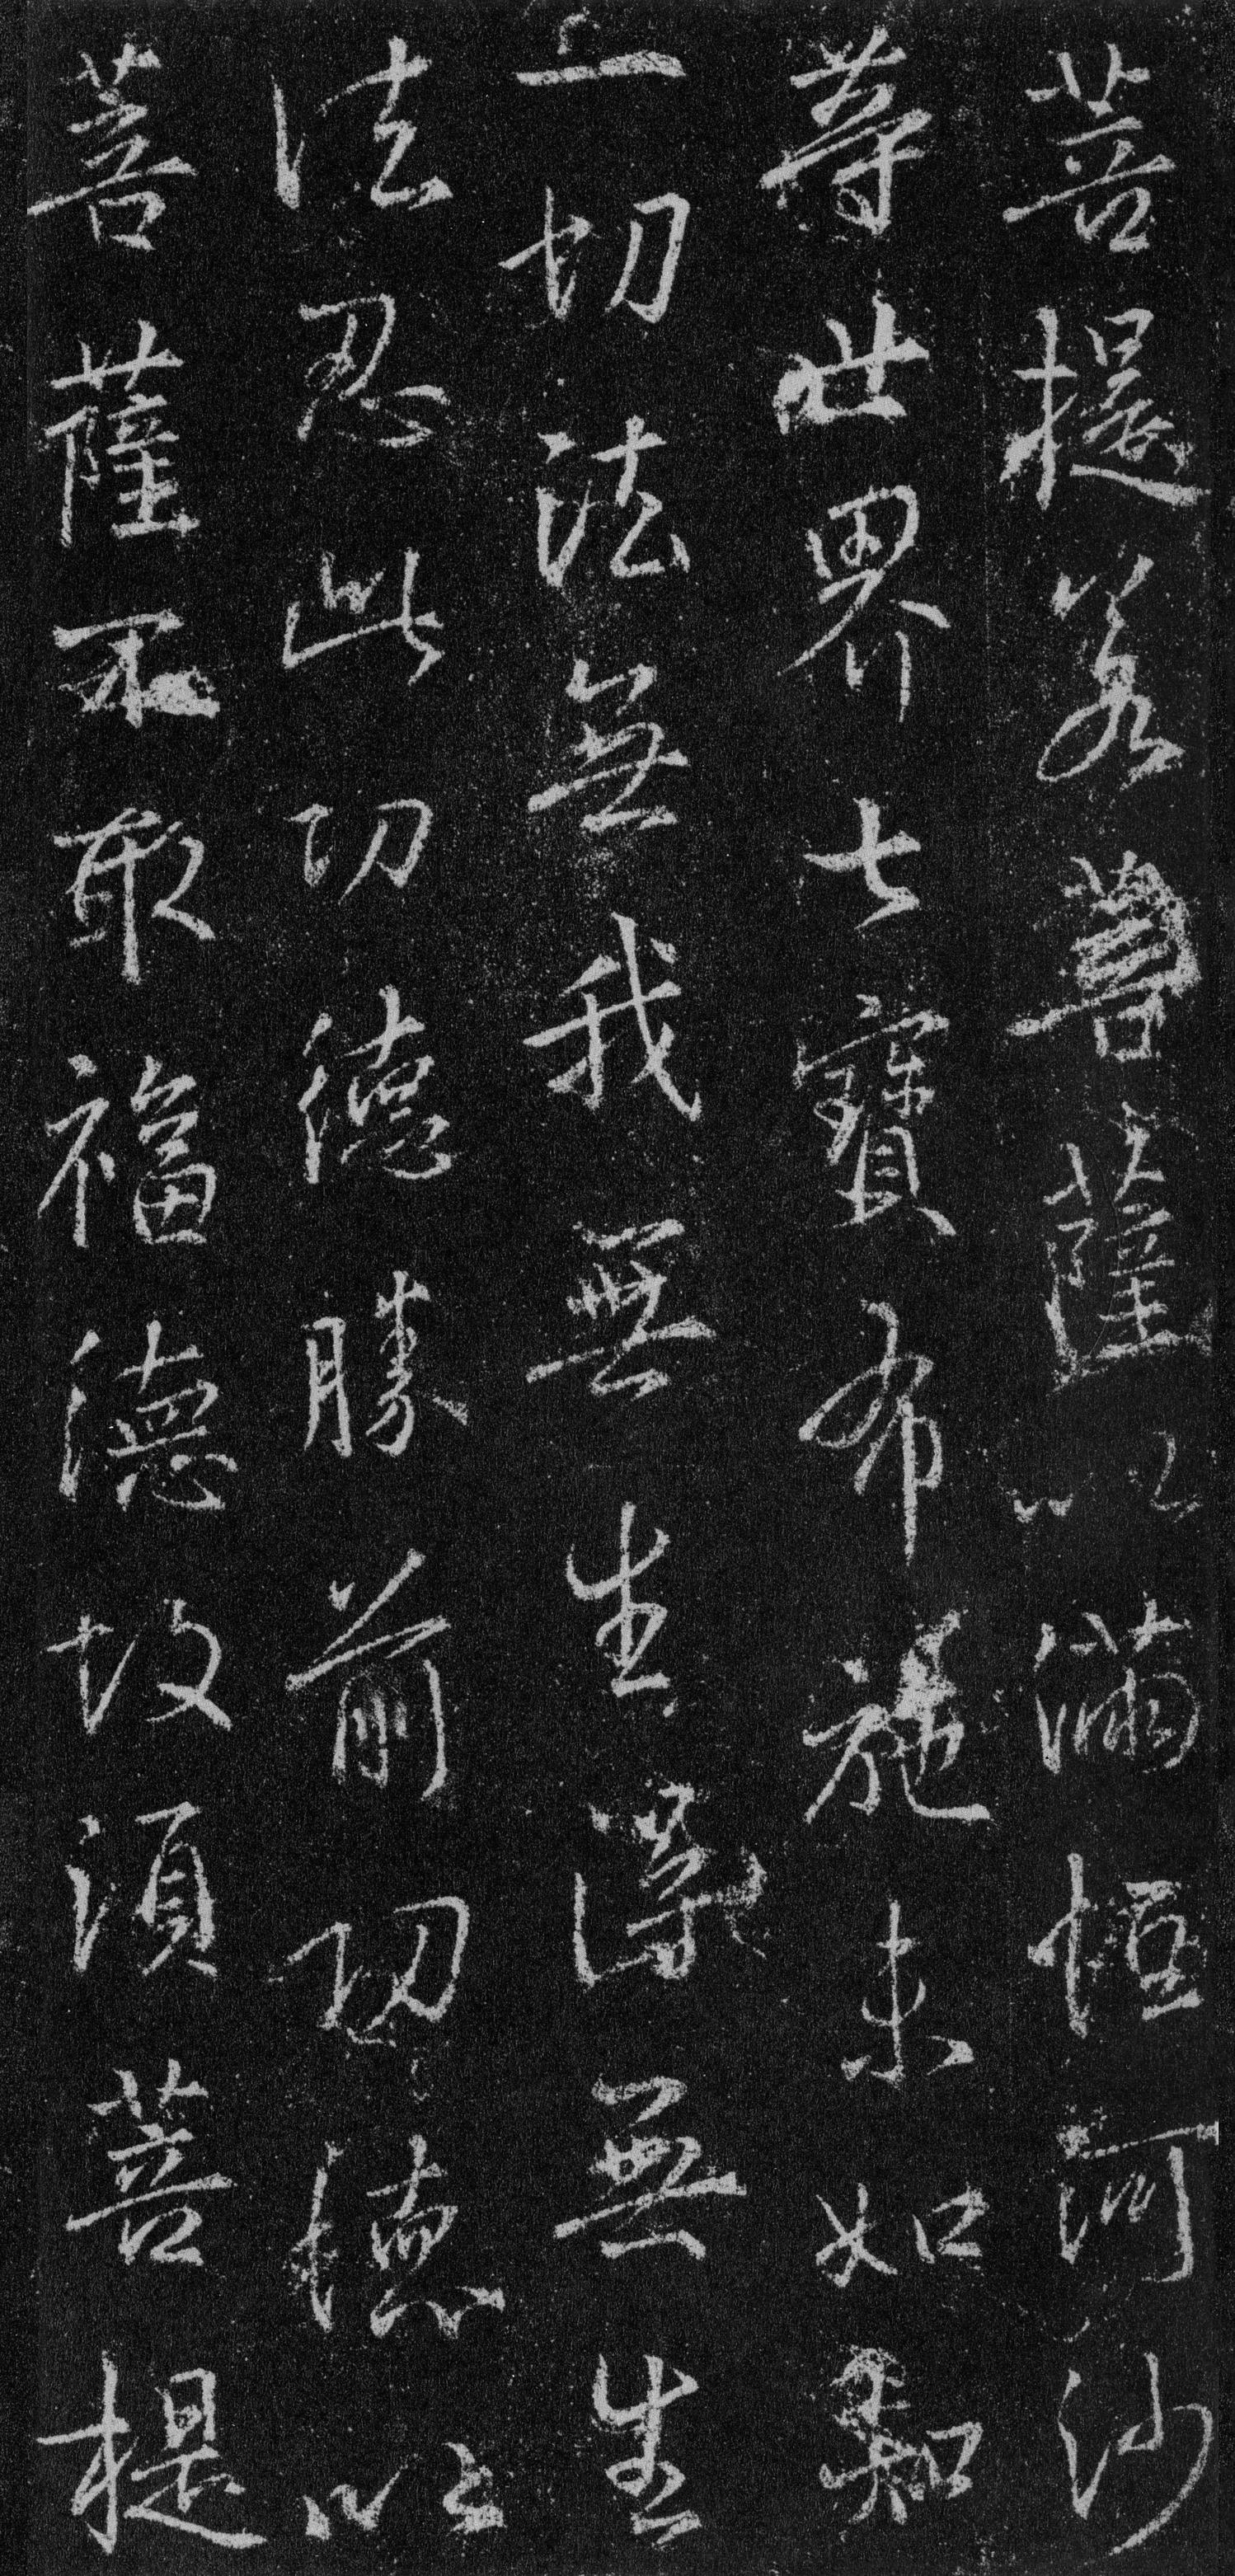 菩提若菩薩以滿恒河沙
等世界七寶布施未如知
一切法無我無生得無生
法忍此功德勝前功德以
菩薩不取福德故須菩提